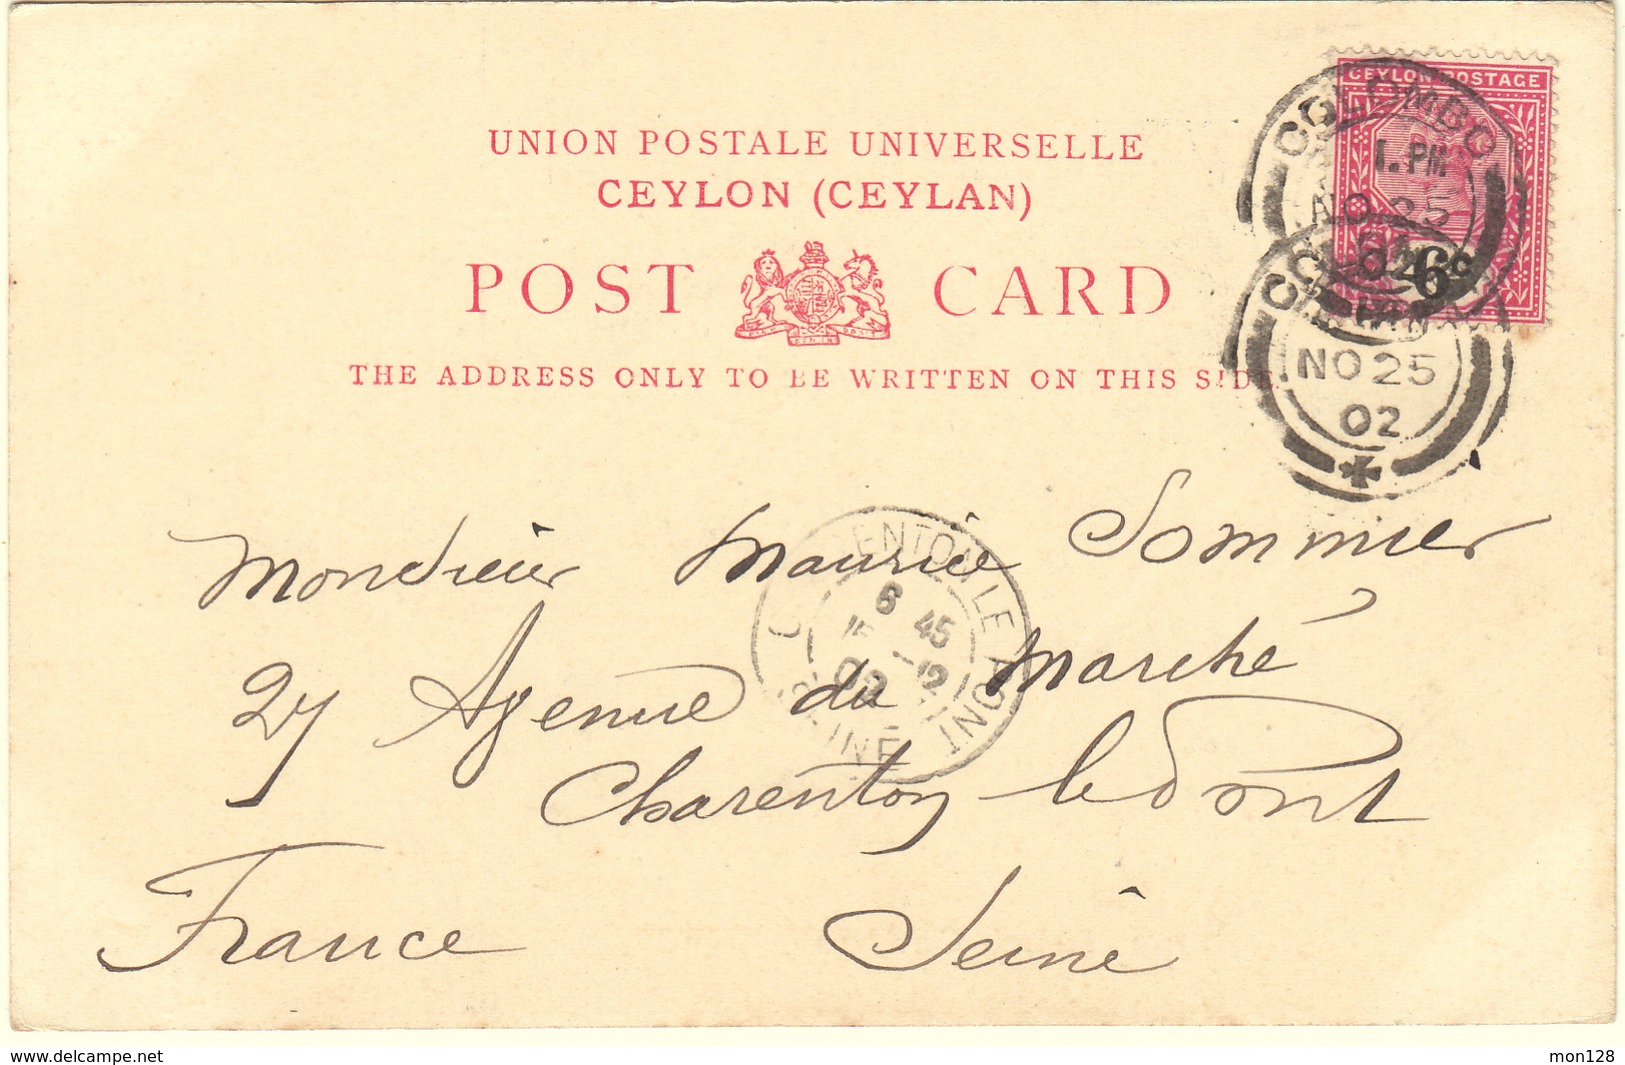 UNION POSTALE UNIVERSELLE
CEYLON (CEYLAN)
POST CARD
THE ADDRESS ONLY TO BE WRITTEN ON THIS SIDE.
CEYLON POSTAGE
6c
COLOMBO
1. PM
NO 25
02
NO 25
02
CHARENTON LE PONT
SEINE
6 45
15 -12
02
Monsieur Maurice Sommer
27 Avenue du Marché
Charenton le Pont
France Seine
www.delcampe.net
mon128